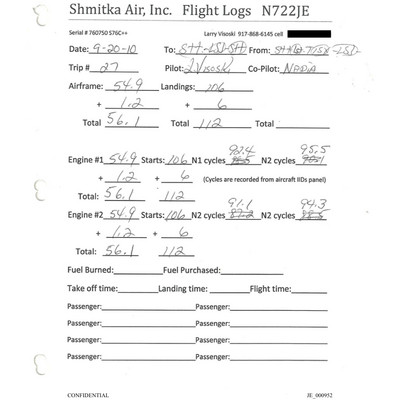 Shmitka Air, Inc. Flight Logs N722JE
Serial # 760750 S76C++ Larry Visoski 917-868-6145 cell
Date: 9-20-10 To: From:
Trip # 27 Pilot: L. Visoski Co-Pilot: Nadia
Airframe: 54.9 Landings: 106
+ 1.2 + 6
Total 56.1 Total 112 Total
92.4 95.5
Engine #1 54.9 Starts: 106 N1 cycles N2 cycles
+ 1.2 + 6 (Cycles are recorded from aircraft IIDs panel)
Total: 56.1 112
91.1 94.3
Engine #2 54.9 Starts: 106 N2 cycles N2 cycles
+ 1.2 + 6
Total: 56.1 112
Fuel Burned: Fuel Purchased:
Take off time: Landing time: Flight time:
Passenger: Passenger:
Passenger: Passenger:
Passenger: Passenger:
Passenger: Passenger:
CONFIDENTIAL JE_000952